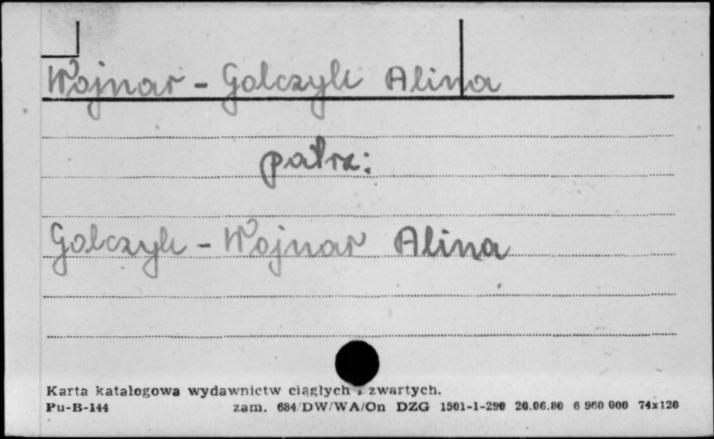 Wojnar - Golczyk Alina
patrz:
Golczyk - Wojnar Alina
Karta katalogowa wydawnictw ciągłych i zwartych.
Pu-B-144 zam. 684/DW/WA/On DZG 1501-1-290 20.06.80 6 960 000 74x120